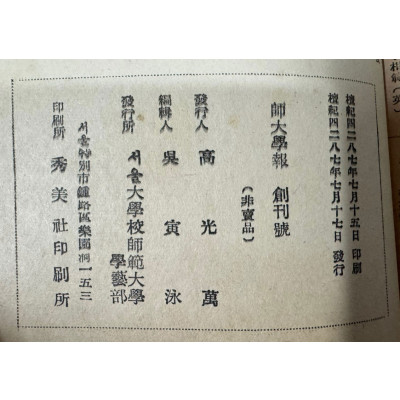 檀紀四二八七年七月十五日 印刷
檀紀四二八七年七月十七日 發行
師大學報 創刊號
(非賣品)
發行人 高光萬
編輯人 吳寅泳
發行所 서울大學校師範大學
學藝部
서울特別市鍾路區樂園洞一五三
印刷所 秀美社印刷所